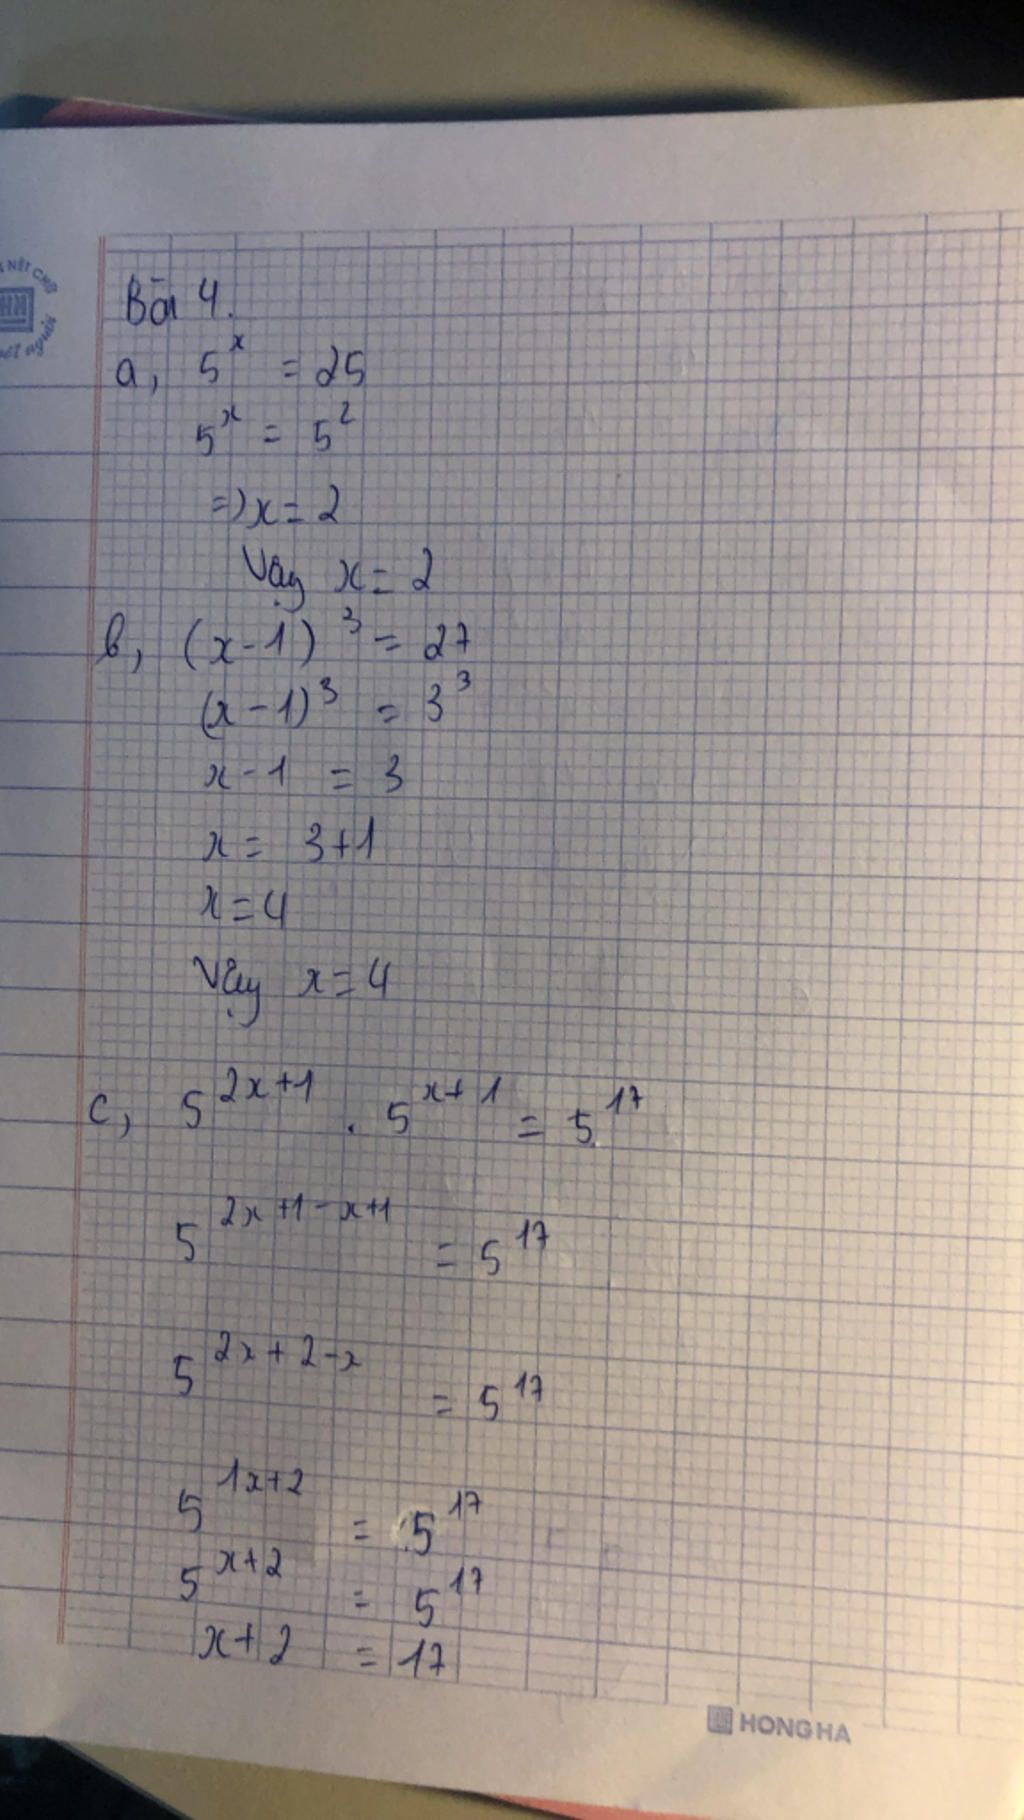 NÉT CHỮ
Bài 4.
a, 5^x = 25
5^x = 5^2
=> x = 2
Vậy x = 2
b, (x-1)^3 = 27
(x-1)^3 = 3^3
x-1 = 3
x = 3+1
x = 4
Vậy x = 4
c, 5^{2x+1} . 5^{x+1} = 5^{17}
5^{2x+1-x+1} = 5^{17}
5^{2x+2-x} = 5^{17}
5^{1x+2} = 5^{17}
5^{x+2} = 5^{17}
x+2 = 17
HONG HA